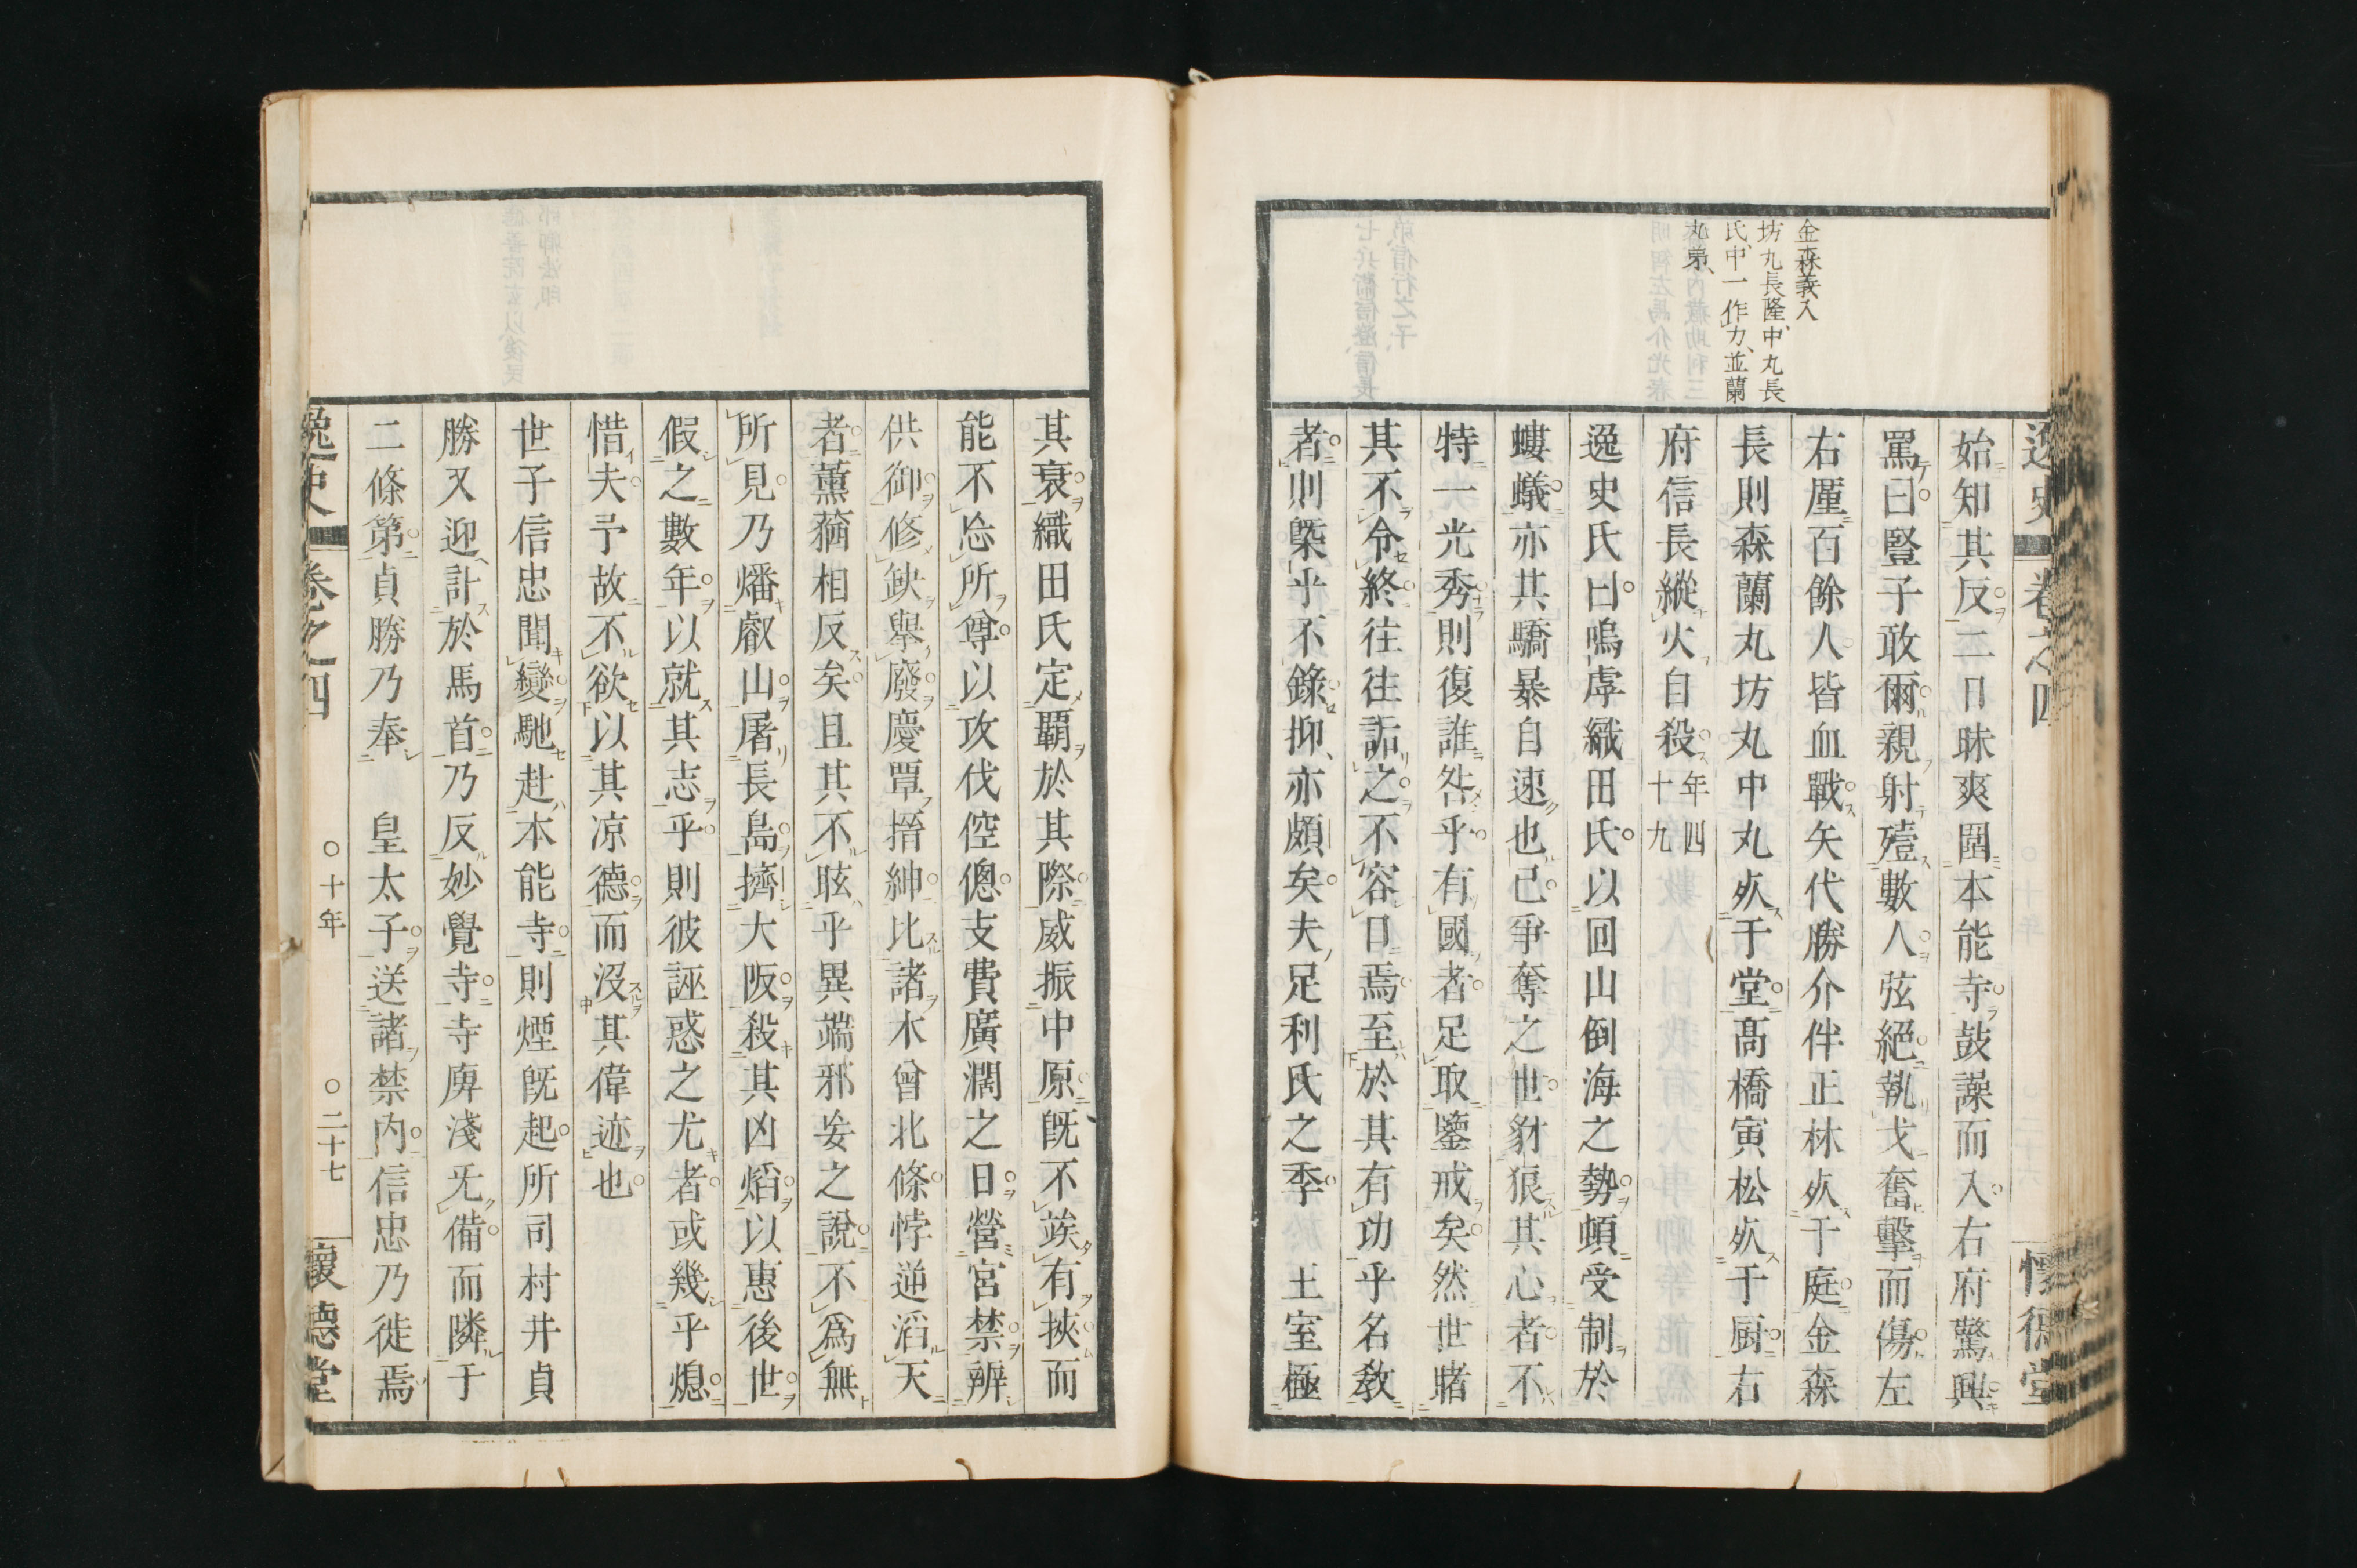 金森義入
坊丸長隆、中丸長
氏、中一作力、並蘭
丸弟、
始知其反二日昧爽圍本能寺鼓譟而入右府驚興
罵曰豎子敢爾親射殪數人弦絕執戈奮擊而傷左
右厪百餘人皆血戰矢代勝介伴正林死于庭金森
長則森蘭丸坊丸中丸死于堂高橋寅松死于厨右
府信長縱火自殺年四十九
逸史氏曰嗚虖織田氏以回山倒海之勢頓受制於
螻蟻亦其驕暴自速也己爭奪之世豺狼其心者不
特一光秀則復誰咎乎有國者足取鑒戒矣然世睹
其不令終往往詬之不容口焉至於其有功乎名敎
者則槩乎不錄抑亦頗矣夫足利氏之季 王室極
其衰織田氏定覇於其際威振中原旣不竢有挾而
能不忩所尊以攻伐倥傯支費廣濶之日營宮禁辨
供御修缺舉廢慶覃搢紳比諸木曾北條悖逆滔天
者薰蕕相反矣且其不眩乎異端邪妄之說不爲無
所見乃燔叡山屠長島擠大阪殺其凶熖以惠後世
假之數年以就其志乎則彼誣惑之尤者或幾乎熄
惜夫予故不欲以其凉德而沒其偉迹也
世子信忠聞變馳赴本能寺則煙旣起所司村井貞
勝又迎計於馬首乃反妙覺寺寺庳淺无備而隣于
二條第貞勝乃奉 皇太子送諸禁内信忠乃徙焉
逸史 卷之四 〇十年 〇二十七 懷德堂